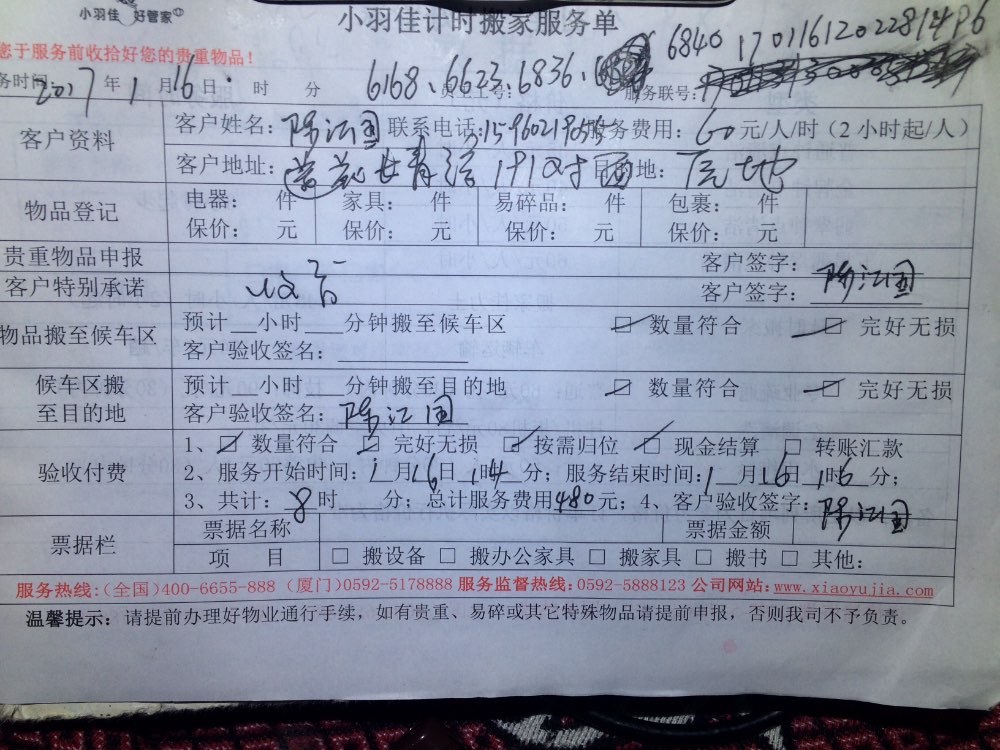 小羽佳 好管家
小羽佳计时搬家服务单
您于服务前收拾好您的贵重物品！
6840 17011612022814P6
务时间: 2017年1月16日 时 分 6168、6623、6836、 员工工号: 服务联号:
客户资料 客户姓名: 陈江国 联系电话: 服务费用: 60元/人/时（2小时起/人）
客户地址: 目的地:
物品登记 电器: 件 家具: 件 易碎品: 件 包裹: 件
保价: 元 保价: 元 保价: 元 保价: 元
贵重物品申报 客户签字: 陈江国
客户特别承诺 客户签字:
物品搬至候车区 预计__小时___分钟搬至候车区 ☑ 数量符合 ☑ 完好无损
客户验收签名:
候车区搬至目的地 预计__小时___分钟搬至目的地 ☑ 数量符合 ☑ 完好无损
客户验收签名: 陈江国
验收付费 1、☑ 数量符合 ☑ 完好无损 ☑ 按需归位 ☑ 现金结算 □ 转账汇款
2、服务开始时间: 1月16日14时 分; 服务结束时间: 1月16日16时 分;
3、共计: 8时 分; 总计服务费用480元; 4、客户验收签字: 陈江国
票据栏 票据名称 票据金额
项 目 □ 搬设备 □ 搬办公家具 □ 搬家具 □ 搬书 □ 其他:
服务热线:(全国)400-6655-888 (厦门)0592-5178888 服务监督热线:0592-5888123 公司网站:www.xiaoyujia.com
温馨提示: 请提前办理好物业通行手续，如有贵重、易碎或其它特殊物品请提前申报，否则我司不予负责。